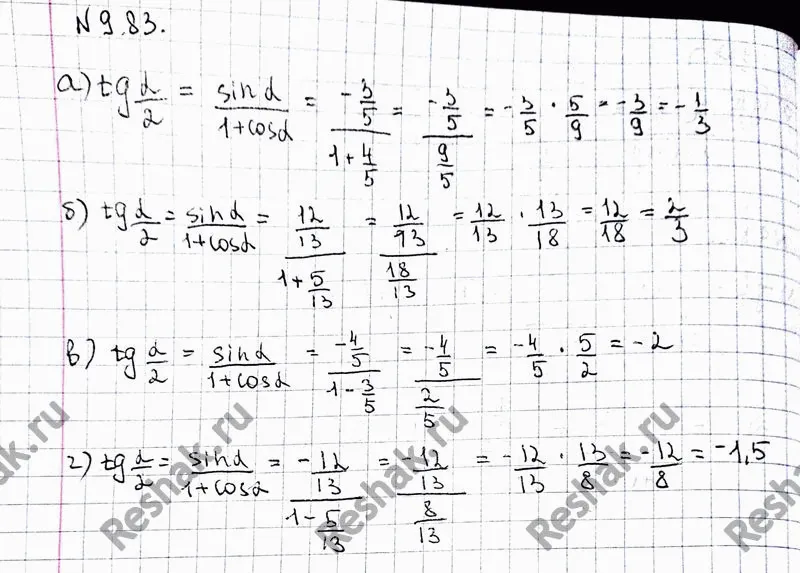 N 9.83.
а) tg α/2 = sinα/(1+cosα) = (-3/5)/(1+4/5) = (-3/5)/(9/5) = -3/5 · 5/9 = -3/9 = -1/3
б) tg α/2 = sinα/(1+cosα) = (12/13)/(1+5/13) = (12/93)/(18/13) = 12/13 · 13/18 = 12/18 = 2/3
в) tg α/2 = sinα/(1+cosα) = (-4/5)/(1-3/5) = (-4/5)/(2/5) = -4/5 · 5/2 = -2
г) tg α/2 = sinα/(1+cosα) = (-12/13)/(1-5/13) = (-12/13)/(8/13) = -12/13 · 13/8 = -12/8 = -1,5
Reshak.ru
Reshak.ru
Reshak.ru
Reshak.ru